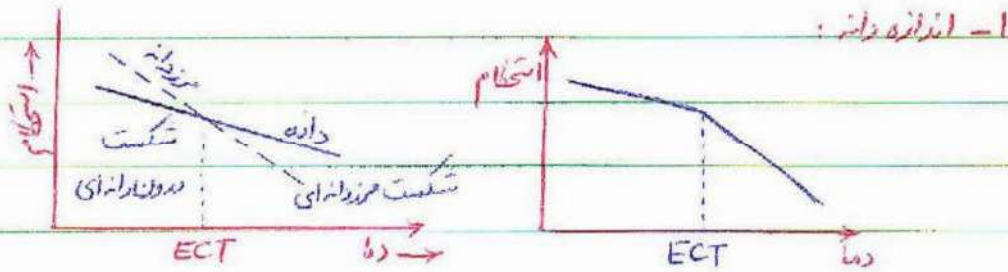 ۱- اندازه دانه :
استحکام
مرزدانه
دانه
شکست
درون‌دانه‌ای
شکست مرزدانه‌ای
ECT
دما
استحکام
ECT
دما